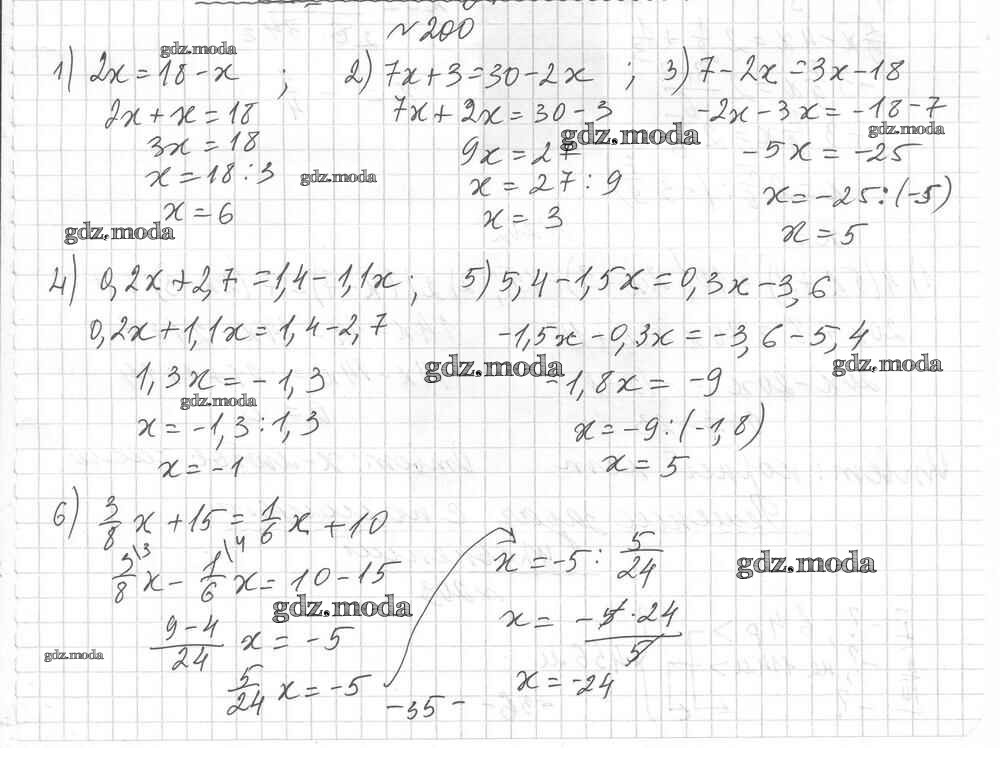 №200
1) 2x = 18 - x ; 2) 7x + 3 = 30 - 2x ; 3) 7 - 2x = 3x - 18
2x + x = 18 7x + 2x = 30 - 3 -2x - 3x = -18 - 7
3x = 18 9x = 27 -5x = -25
x = 18 : 3 x = 27 : 9 x = -25 : (-5)
x = 6 x = 3 x = 5
4) 0,2x + 2,7 = 1,4 - 1,1x ; 5) 5,4 - 1,5x = 0,3x - 3,6
0,2x + 1,1x = 1,4 - 2,7 -1,5x - 0,3x = -3,6 - 5,4
1,3x = -1,3 -1,8x = -9
x = -1,3 : 1,3 x = -9 : (-1,8)
x = -1 x = 5
6) 3/8 x + 15 = 1/6 x + 10
3/8 \3 x - 1/6 \4 x = 10 - 15 x = -5 : 5/24
9-4/24 x = -5 x = -5·24/5
5/24 x = -5 x = -24
-35-
gdz.moda
gdz.moda
gdz.moda
gdz.moda
gdz.moda
gdz.moda
gdz.moda
gdz.moda
gdz.moda
gdz.moda
gdz.moda